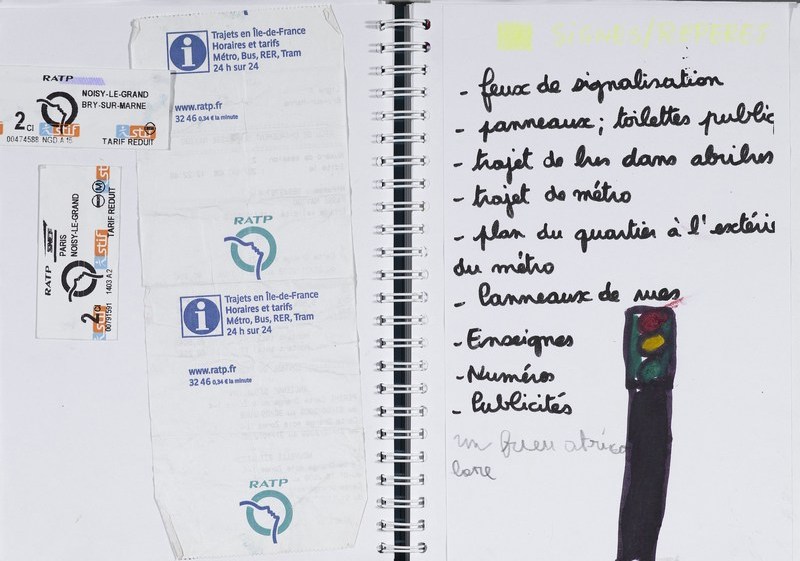 RATP
NOISY-LE-GRAND
BRY-SUR-MARNE
2 CI
stif
stif
00474588 NGD A 15
TARIF REDUIT
RATP SNCF
PARIS
NOISY-LE-GRAND
2 CI
stif
stif
TARIF REDUIT
00791591 1403 A2
i
Trajets en Île-de-France
Horaires et tarifs
Métro, Bus, RER, Tram
24 h sur 24
www.ratp.fr
32 46 0,34 € la minute
RATP
i
Trajets en Île-de-France
Horaires et tarifs
Métro, Bus, RER, Tram
24 h sur 24
www.ratp.fr
32 46 0,34 € la minute
RATP
- feux de signalisation
- panneaux; toilettes public
- trajet de bus dans abribus
- trajet de métro
- plan du quartier à l'extéri
du métro
- Panneaux de rues
- Enseignes
- Numéros
- Publicités
un